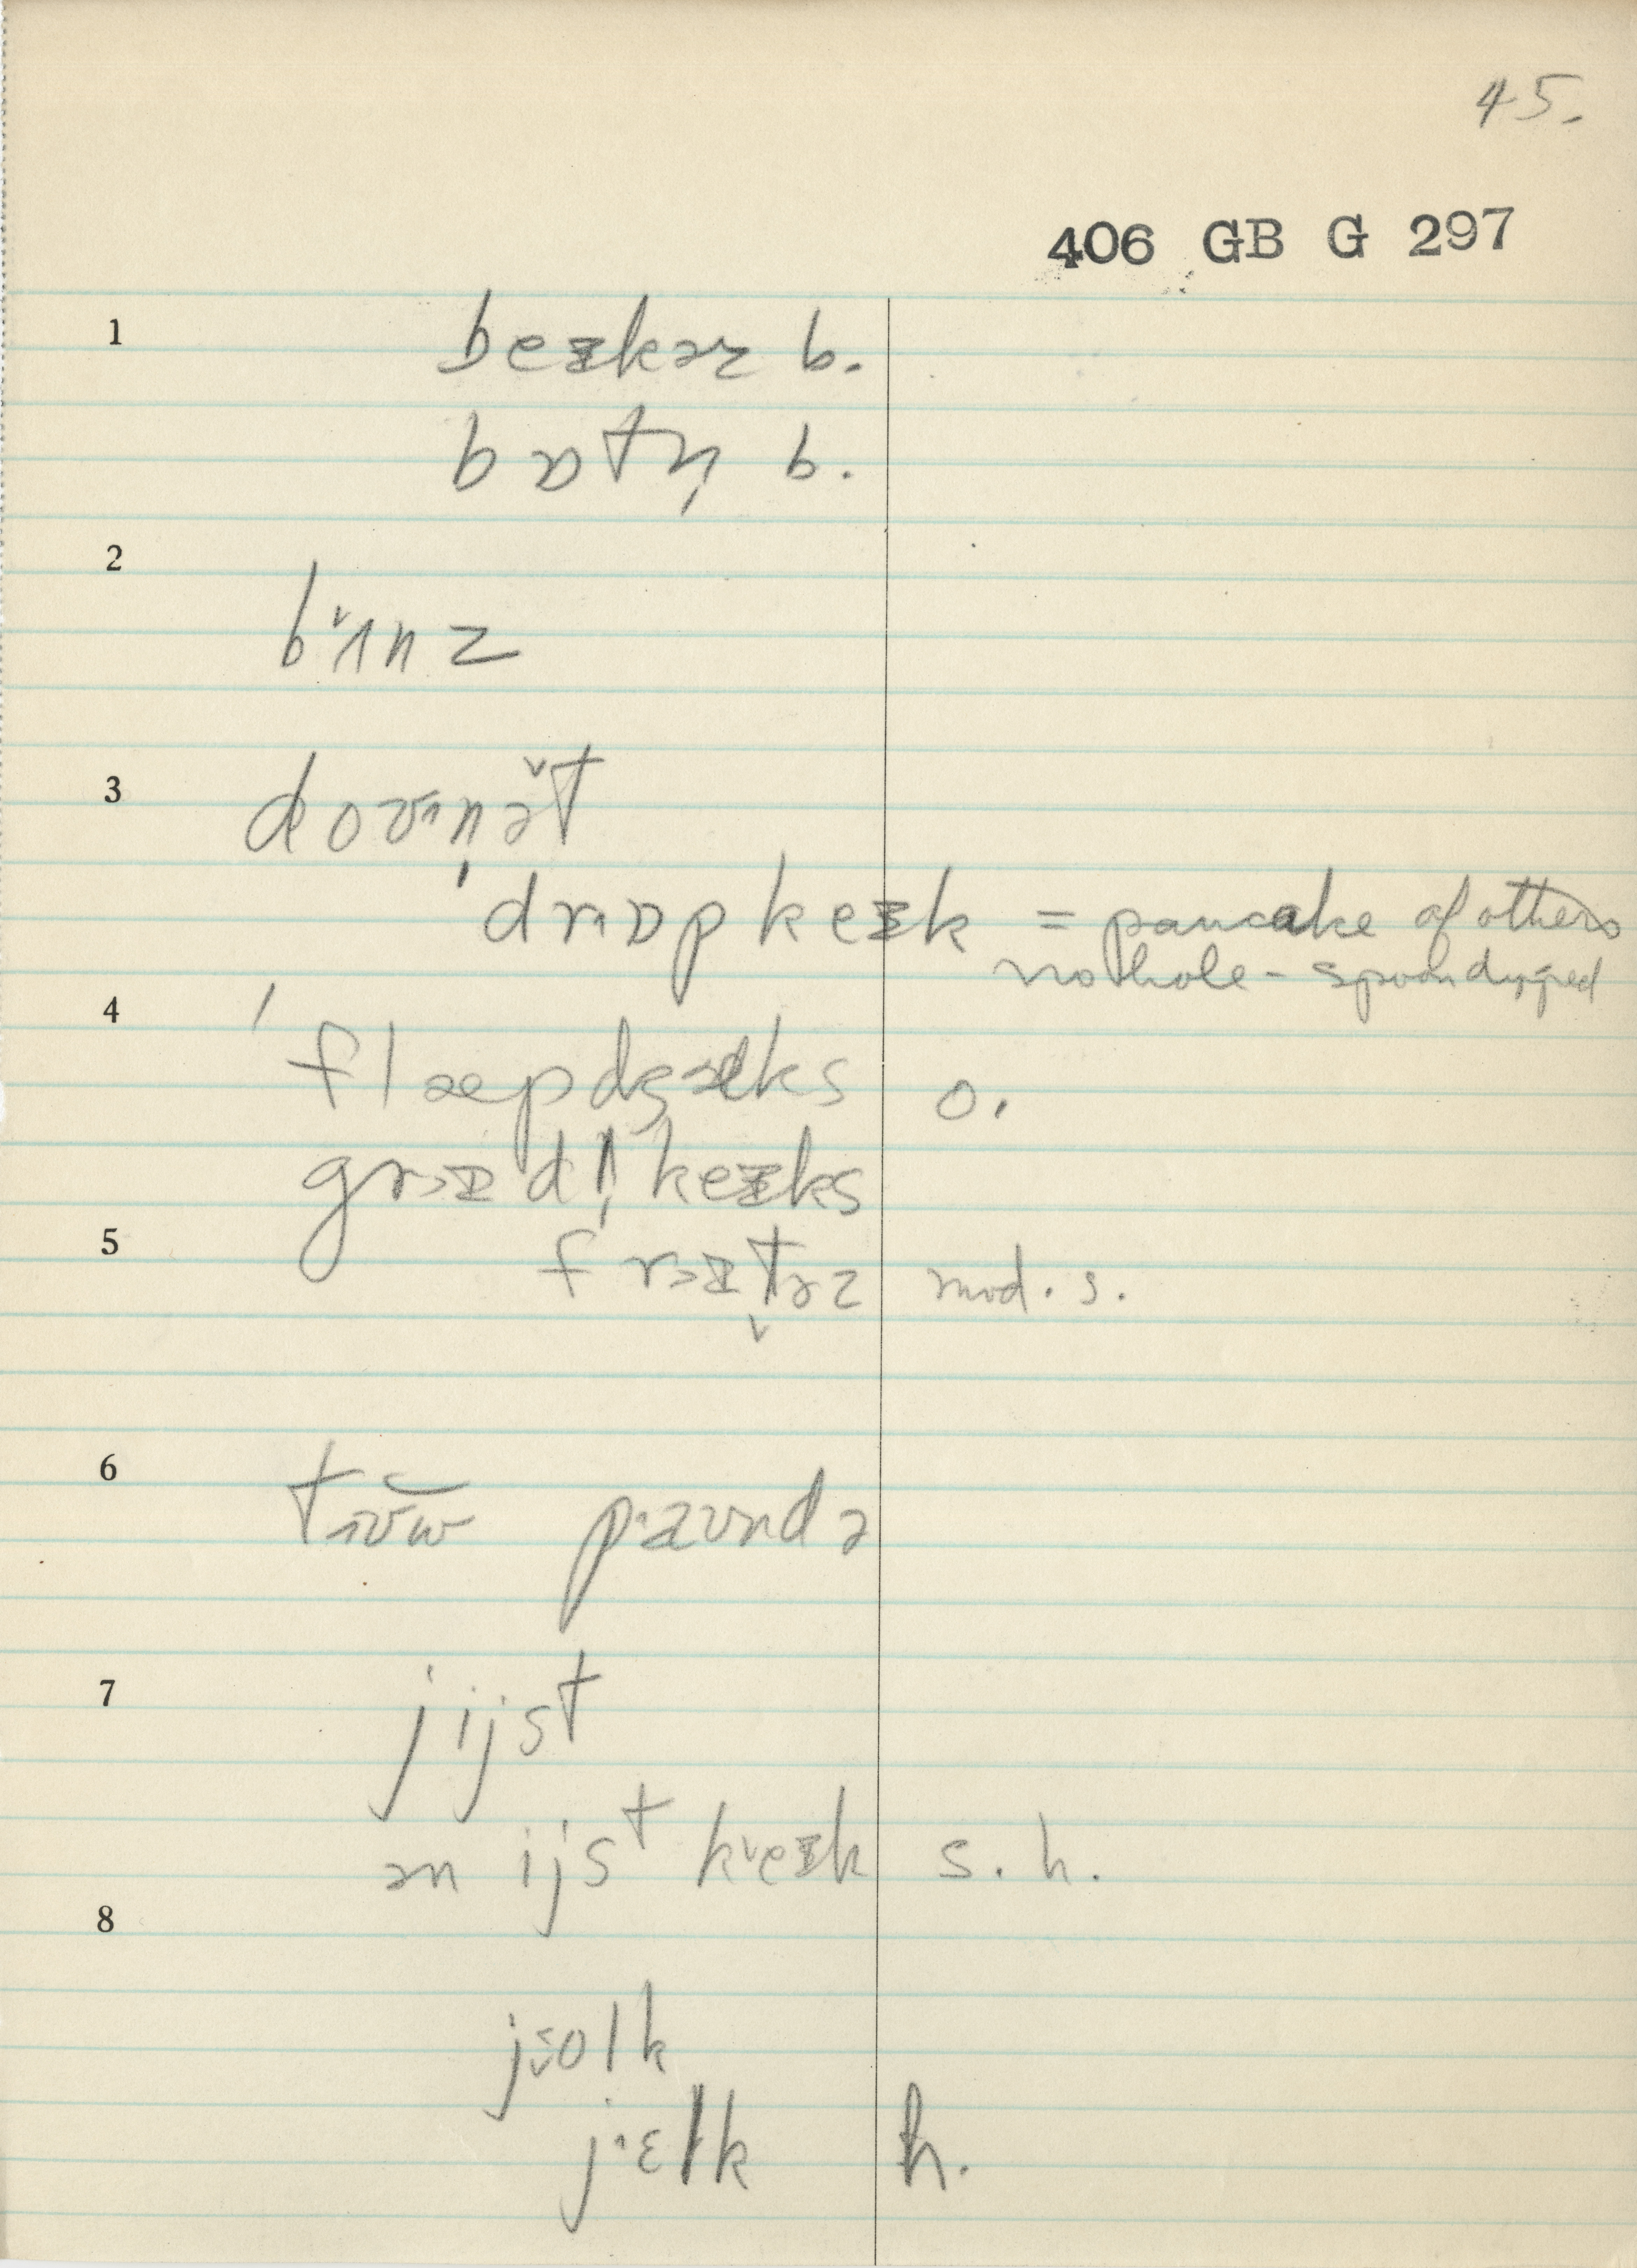 45.
406 GB G 297
1
beᵻkɚ b.
bɒtn̩ b.
2
bˇɪnz
3
doʊnət
drɒp keᵻk = pancake of others
no hole - spoon dripped
4
flæpdʒæks o.
grɪdl̩ keᵻks
5
frɪtɚz mod. s.
6
tɪʊw paʊndə
7
jijst
ən ijst keᵻk s. h.
8
jolk
jɛlk h.